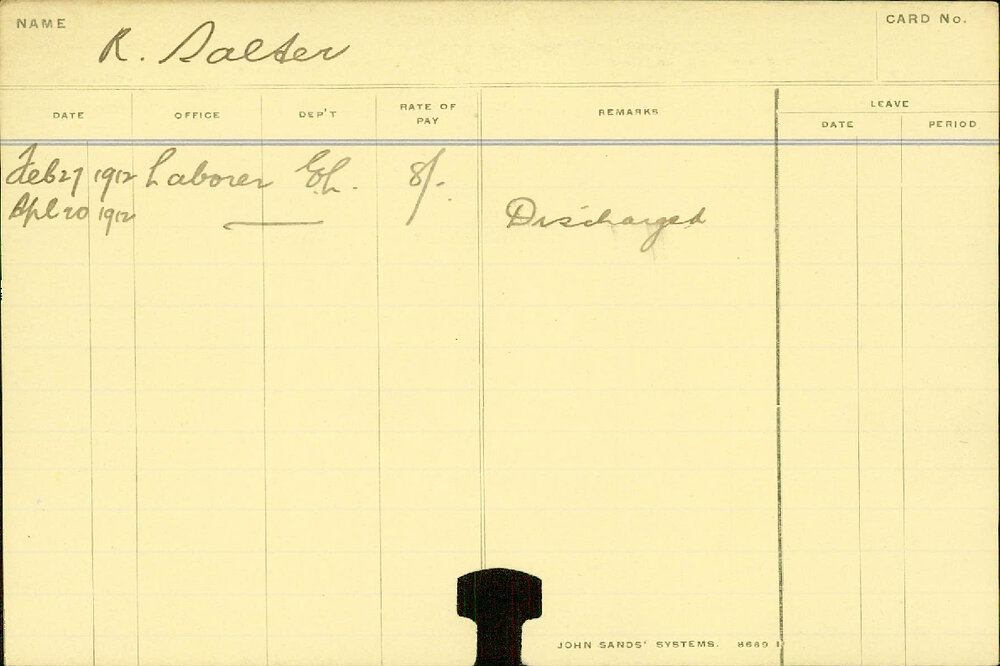 NAME
R. Salter
CARD No.
DATE
OFFICE
DEP'T
RATE OF PAY
REMARKS
LEAVE
DATE
PERIOD
Feb 27 1912 Laborer 8/-
Apl 20 1912 Discharged
JOHN SANDS' SYSTEMS.